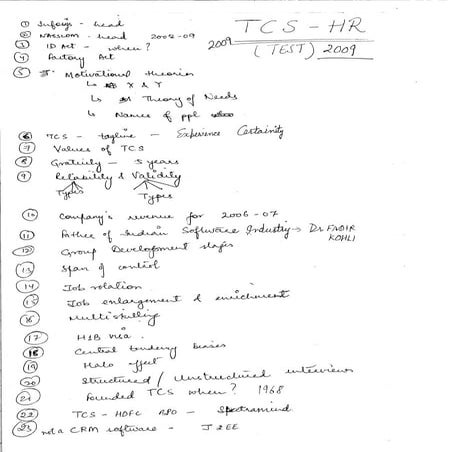 TCS - HR
2009 (TEST) 2009
1 Infosys - head
2 NASSCOM - head 2008-09
3 ID Act - when?
4 Factory Act
5 Motivational theories
↳ X & Y
↳ Theory of Needs
↳ Names of ppl
6 TCS - tagline - Experience Certainity
7 Values of TCS
8 Gratuity - 5 years
9 Reliability & Validity
Types Types
10 Company's revenue for 2006-07
11 Father of Indian Software Industry → Dr FAQIR KOHLI
12 Group Development stages
13 Span of control
14 Job rotation
15 Job enlargement & enrichment
16 Multiskilling
17 H1B visa.
18 Central tendency biases
19 Halo effect
20 Structured / Unstructured interviews
21 Founded TCS when? 1968
22 TCS - HDFC BPO - Spectramind
23 not a CRM software - J2EE